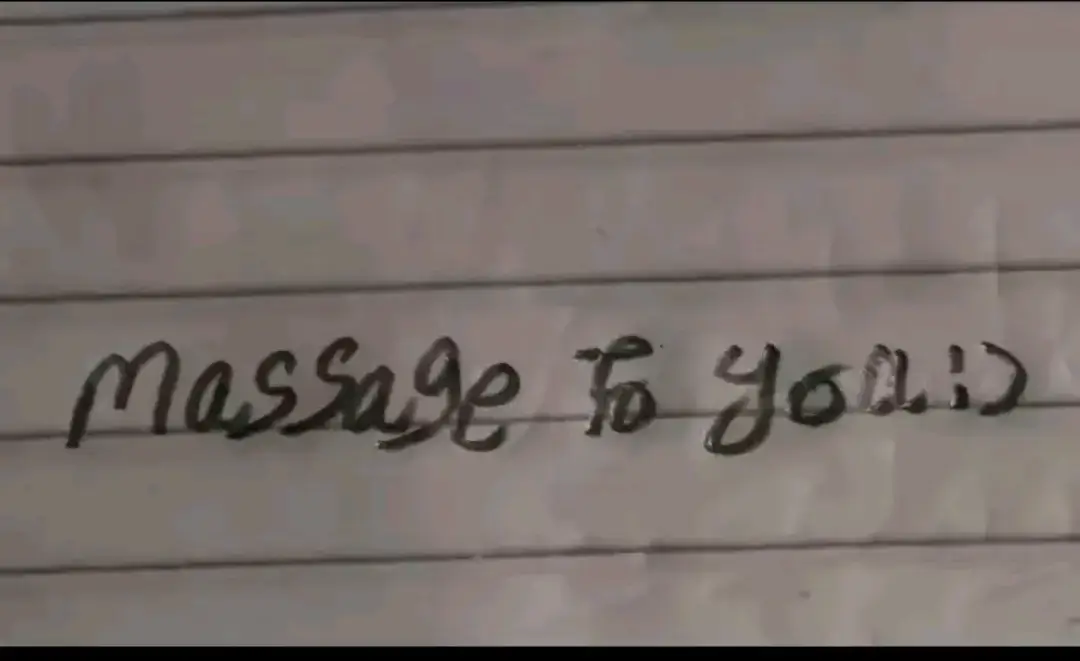 Massage To you:)